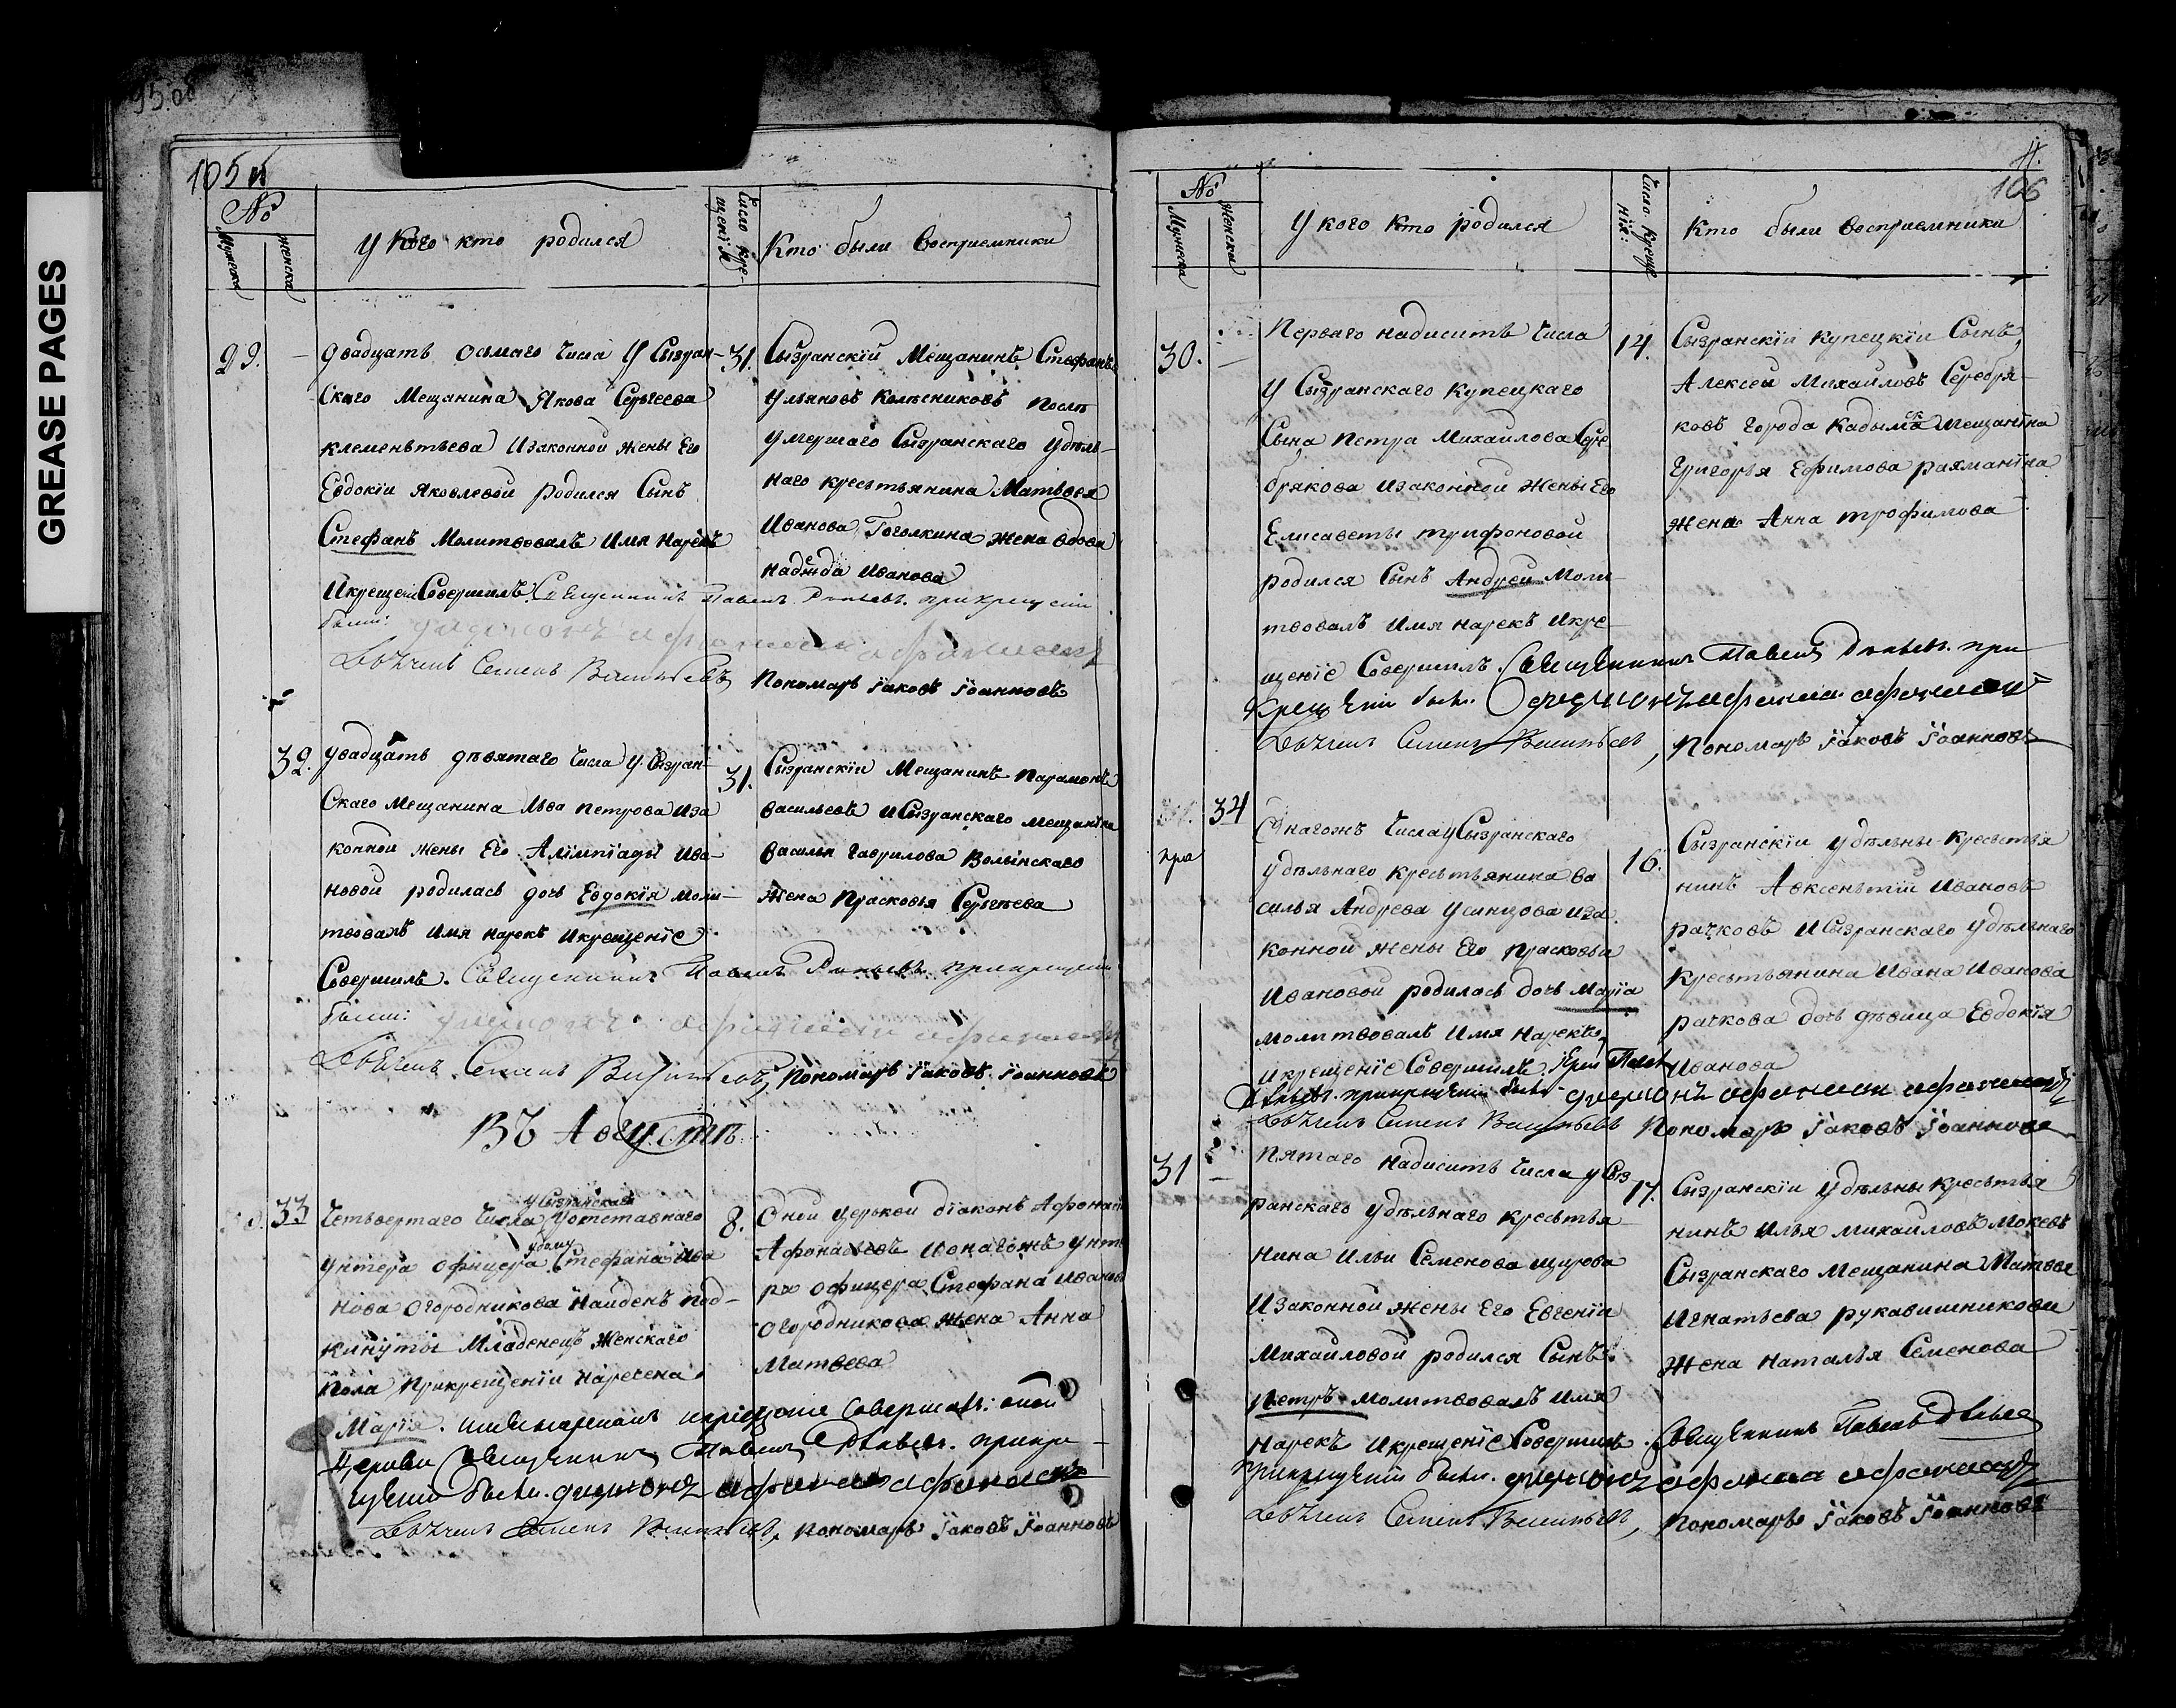 GREASE PAGES
95 об
105
№
Мужеска
женска
У кого кто родился
Число кре-
щенія
Кто были восприемники
29.
Двадцать осьмаго числа У Сызран-
скаго Мещанина Якова Сергеева
клеменьтьева Изаконной жены Его
Евдокіи Яковлевой родился Сынъ
Стефанъ Молитвовалъ Имя Нарекъ
Икрещеніе Совершилъ. Священникъ Павелъ прикрещеніи
были:
Семенъ Васильевъ
31.
Сызранскій Мещанинъ Стефанъ
Ульяновъ Колѣсниковъ Послѣ
умершаго Сызранскаго Удѣль-
наго крестьянина Матвея
Иванова Гоголкина жена вдова
Надѣжда Иванова
Пономарь Іаковъ Іоанновъ
32.
Двадцать девятаго Числа У Сызран-
скаго Мещанина Льва Петрова Иза
конной жены Его Алимпіады Ива-
новой родилась дочь Евдокія Моли-
твовалъ Имя нарекъ Икрещеніе
Совершилъ. Священникъ Павелъ прикрещеніи
были:
Семенъ Васильевъ, Пономарь Іаковъ Іоанновъ
31.
Сызранскій Мещанинъ Парамонъ
Васильевъ ИСызранскаго мещанина
Василья Гаврилова Волынскаго
жена Прасковья Сергѣева
Въ Августѣ
33
Четвертаго Числа У Сызранскаго Уотставнаго
Унтера офицера Стефана Ива
нова Огородникова Найденъ под-
кинуты Младенецъ Женскаго
пола Прикрещеніи наречена
Марія. Совершалъ: оной
Церкви Священникъ Павелъ прикре-
щеніи были. Афанасей Афанасьевъ
Семенъ Васильевъ, Пономарь Іаковъ Іоанновъ
8.
Оной церькви діаконъ Афонасій
Афонасьевъ Ионагожъ Унте
ра офицера Стефана Иванова
Огородникова жена Анна
Матвеева
11.
106
№
Мужеска
женска
У кого кто родился
Число креще
нія:
Кто были восприемники
30.
Перваго надесить Числа
У Сызранскаго Купецкаго
Сына Петра Михайлова Сере
брякова Изаконной жены Его
Елисаветы Трифоновой
родился Сынъ Андрей Моли-
твовалъ Имя нарекъ Икре-
щеніе Совершилъ. Священникъ Павелъ при
крещеніи были. Афанасей Афанасьевъ
Семенъ Васильевъ, Пономарь Іаковъ Іоанновъ
14.
Сызранскій Купецкій Сынъ
Алексей Михайловъ Серебря-
ковъ города Кадымска Мещанина
Григорья Ефимова рахманина
жена Анна Трофимова
34
Онагожъ Числа уСызранскаго
удѣльнаго крестьянина Ва
силья Андрева Усанцова Иза
конной жены Его Прасковьи
Ивановой родилась дочь Марія
Молитвовалъ Имя Нарекъ
Икрещеніе Совершилъ Іерей Павелъ
прикрещеніи были Афанасей Афанасьевъ
Семенъ Васильевъ Пономарь Іаковъ Іоанновъ
16.
Сызранскій Удѣльны крестья
нинъ Авксеньтій Ивановъ
рачковъ ИСызранскаго Удѣльнаго
Крестьянина Ивана Иванова
рачкова дочь дѣвица Евдокія
Иванова
31
Пятаго надесить числа уСыз
ранскаго удѣльнаго крестья-
нина Ильи Семенова щурова
Изаконной жены Его Евгеніи
Михайловой родился Сынъ
Петръ Молитвовалъ Имя
Нарекъ Икрещеніе Совершилъ. Священникъ Павелъ
прикрещеніи были. Афанасей Афанасьевъ
Семенъ Васильевъ, Пономарь Іаковъ Іоанновъ
17.
Сызранскій Удѣльны крестья
нинъ Илья Михайловъ Мокеевъ
Сызранскаго Мещанина Матвея
Игнатьева рукавишникова
жена Наталья Семенова